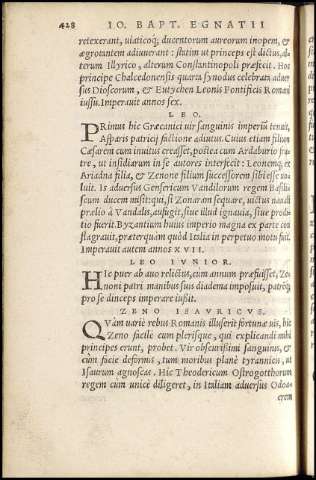 428 IO. BAPT. EGNATII
retexerant, uiaticoq; ducentorum aureorum inopem, &
ægrotantem adiuuerant: statim ut princeps est dictus, al-
terum Illyrico, alterum Constantinopoli præfecit. Hoc
principe Chalcedonensis quarta synodus celebrata aduer
sus Dioscorum, & Eutychen Leonis Pontificis Romani
iussu. Imperauit annos sex.
LEO.
PRimus hic Græcanici uir sanguinis imperiũ tenuit,
Asparis patricij factione adiutus. Cuius etiam filium
Cæsarem cum inuitus creasset, postea cum Ardaburio pa-
tre, ut insidiarum in se autores interfecit: Leonemq; ex
Ariadna filia, & Zenone filium successorem sibi esse uo-
luit. Is aduersus Gensericum Vandilorum regem Basilis
scum ducem misit: qui, si Zonaron sequare, uictus nauali
prælio à Vandalis, aufugit, siue illud ignauia, siue prodi-
tio fuerit. Byzantium huius imperio magna ex parte con
flagrauit, præterquàm quòd Italia in perpetuo motu fuit.
Imperauit autem annos XVII.
LEO IVNIOR.
HIc puer ab auo relictus, cum annum præfuisset, Ze-
noni patri manibus suis diadema imposuit, patrẽq;
pro se deinceps imperare iussit.
ZENO ISAVRICVS.
QVàm uarie rebus Romanis illuserit fortunæ uis, hic
Zeno facile cum plerisque, qui explicandi mihi
principes erunt, probet. Vir obscurissimi sanguinis, &
cùm facie deformis, tum moribus planè tyrannicis, ut
Isaurum agnoscas. Hic Theodericum Ostrogotthorum
regem cum unicè diligeret, in Italiam aduersus Odoa-
crem